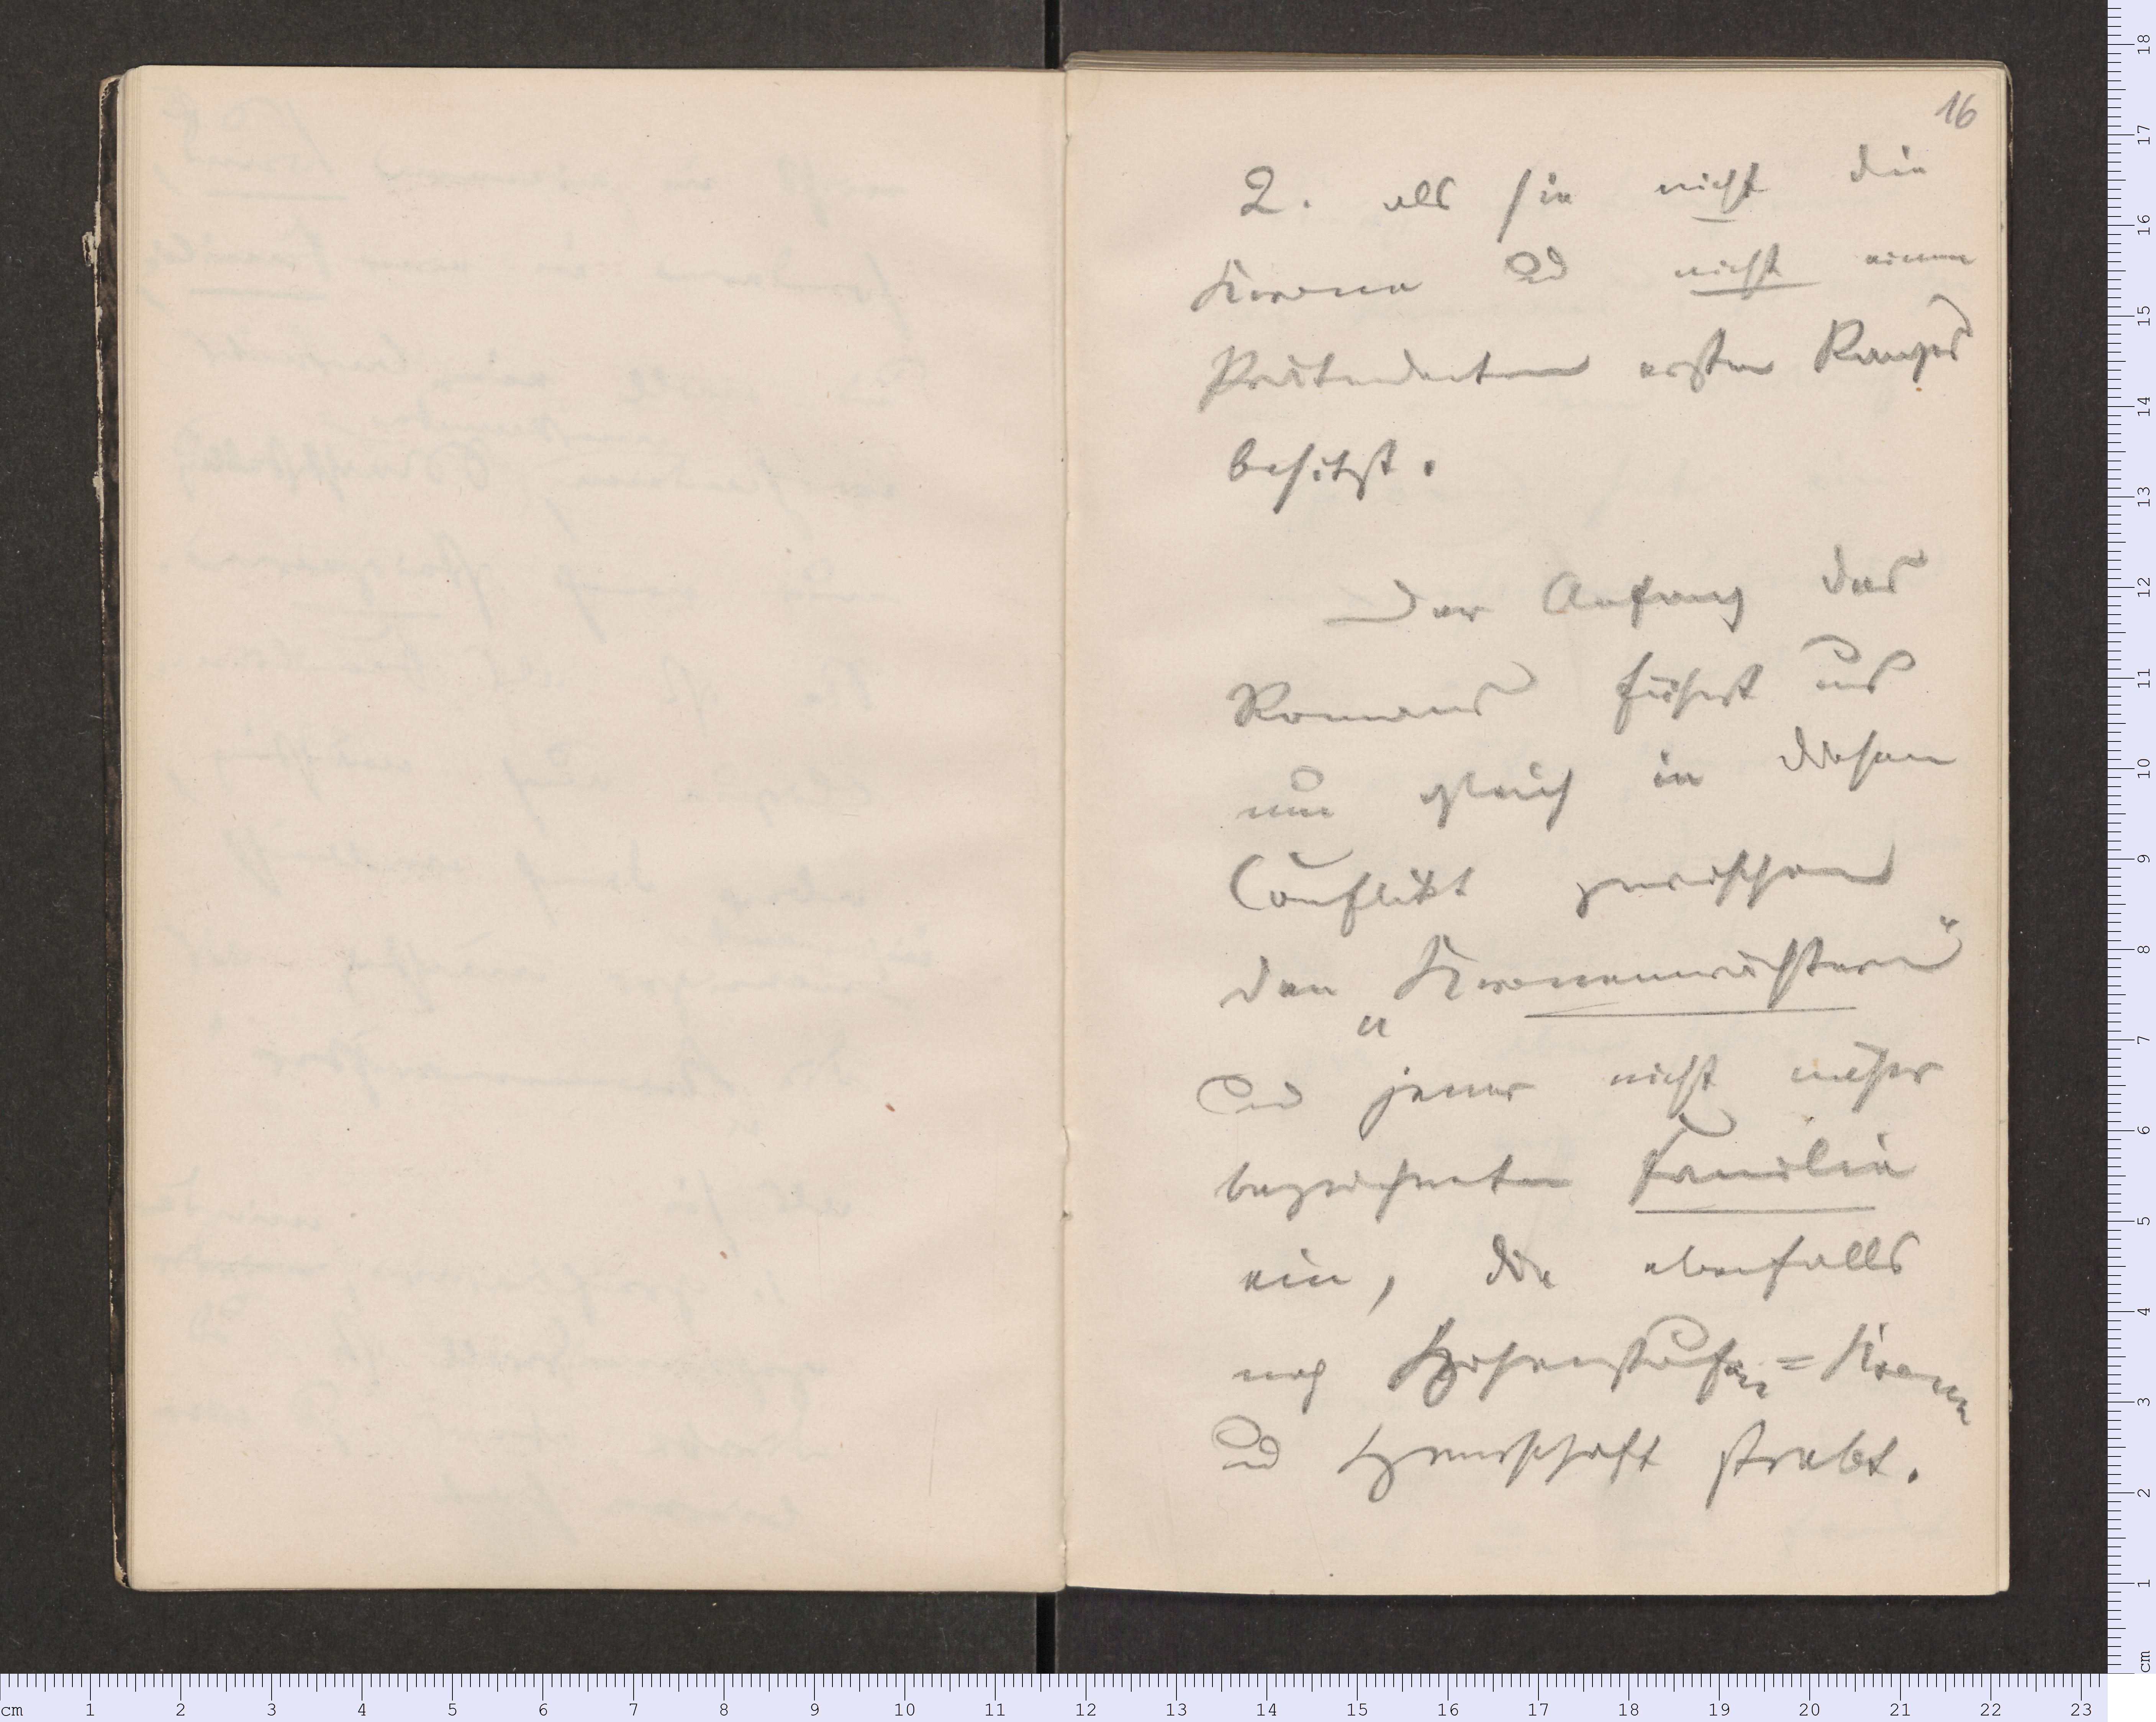 16
2. als sie nicht die
Krone und nicht einen
Prätendenten ersten Ranges
besitzt.
Der Anfang des
Romans führt uns
nun gleich in diesen
Conflikt zwischen
den „Kronenwächtern“
und jener nicht näher
bezeichneten Familie
ein, die ebenfalls
nach Hohenstaufen-Krone
und Herrschaft strebt.